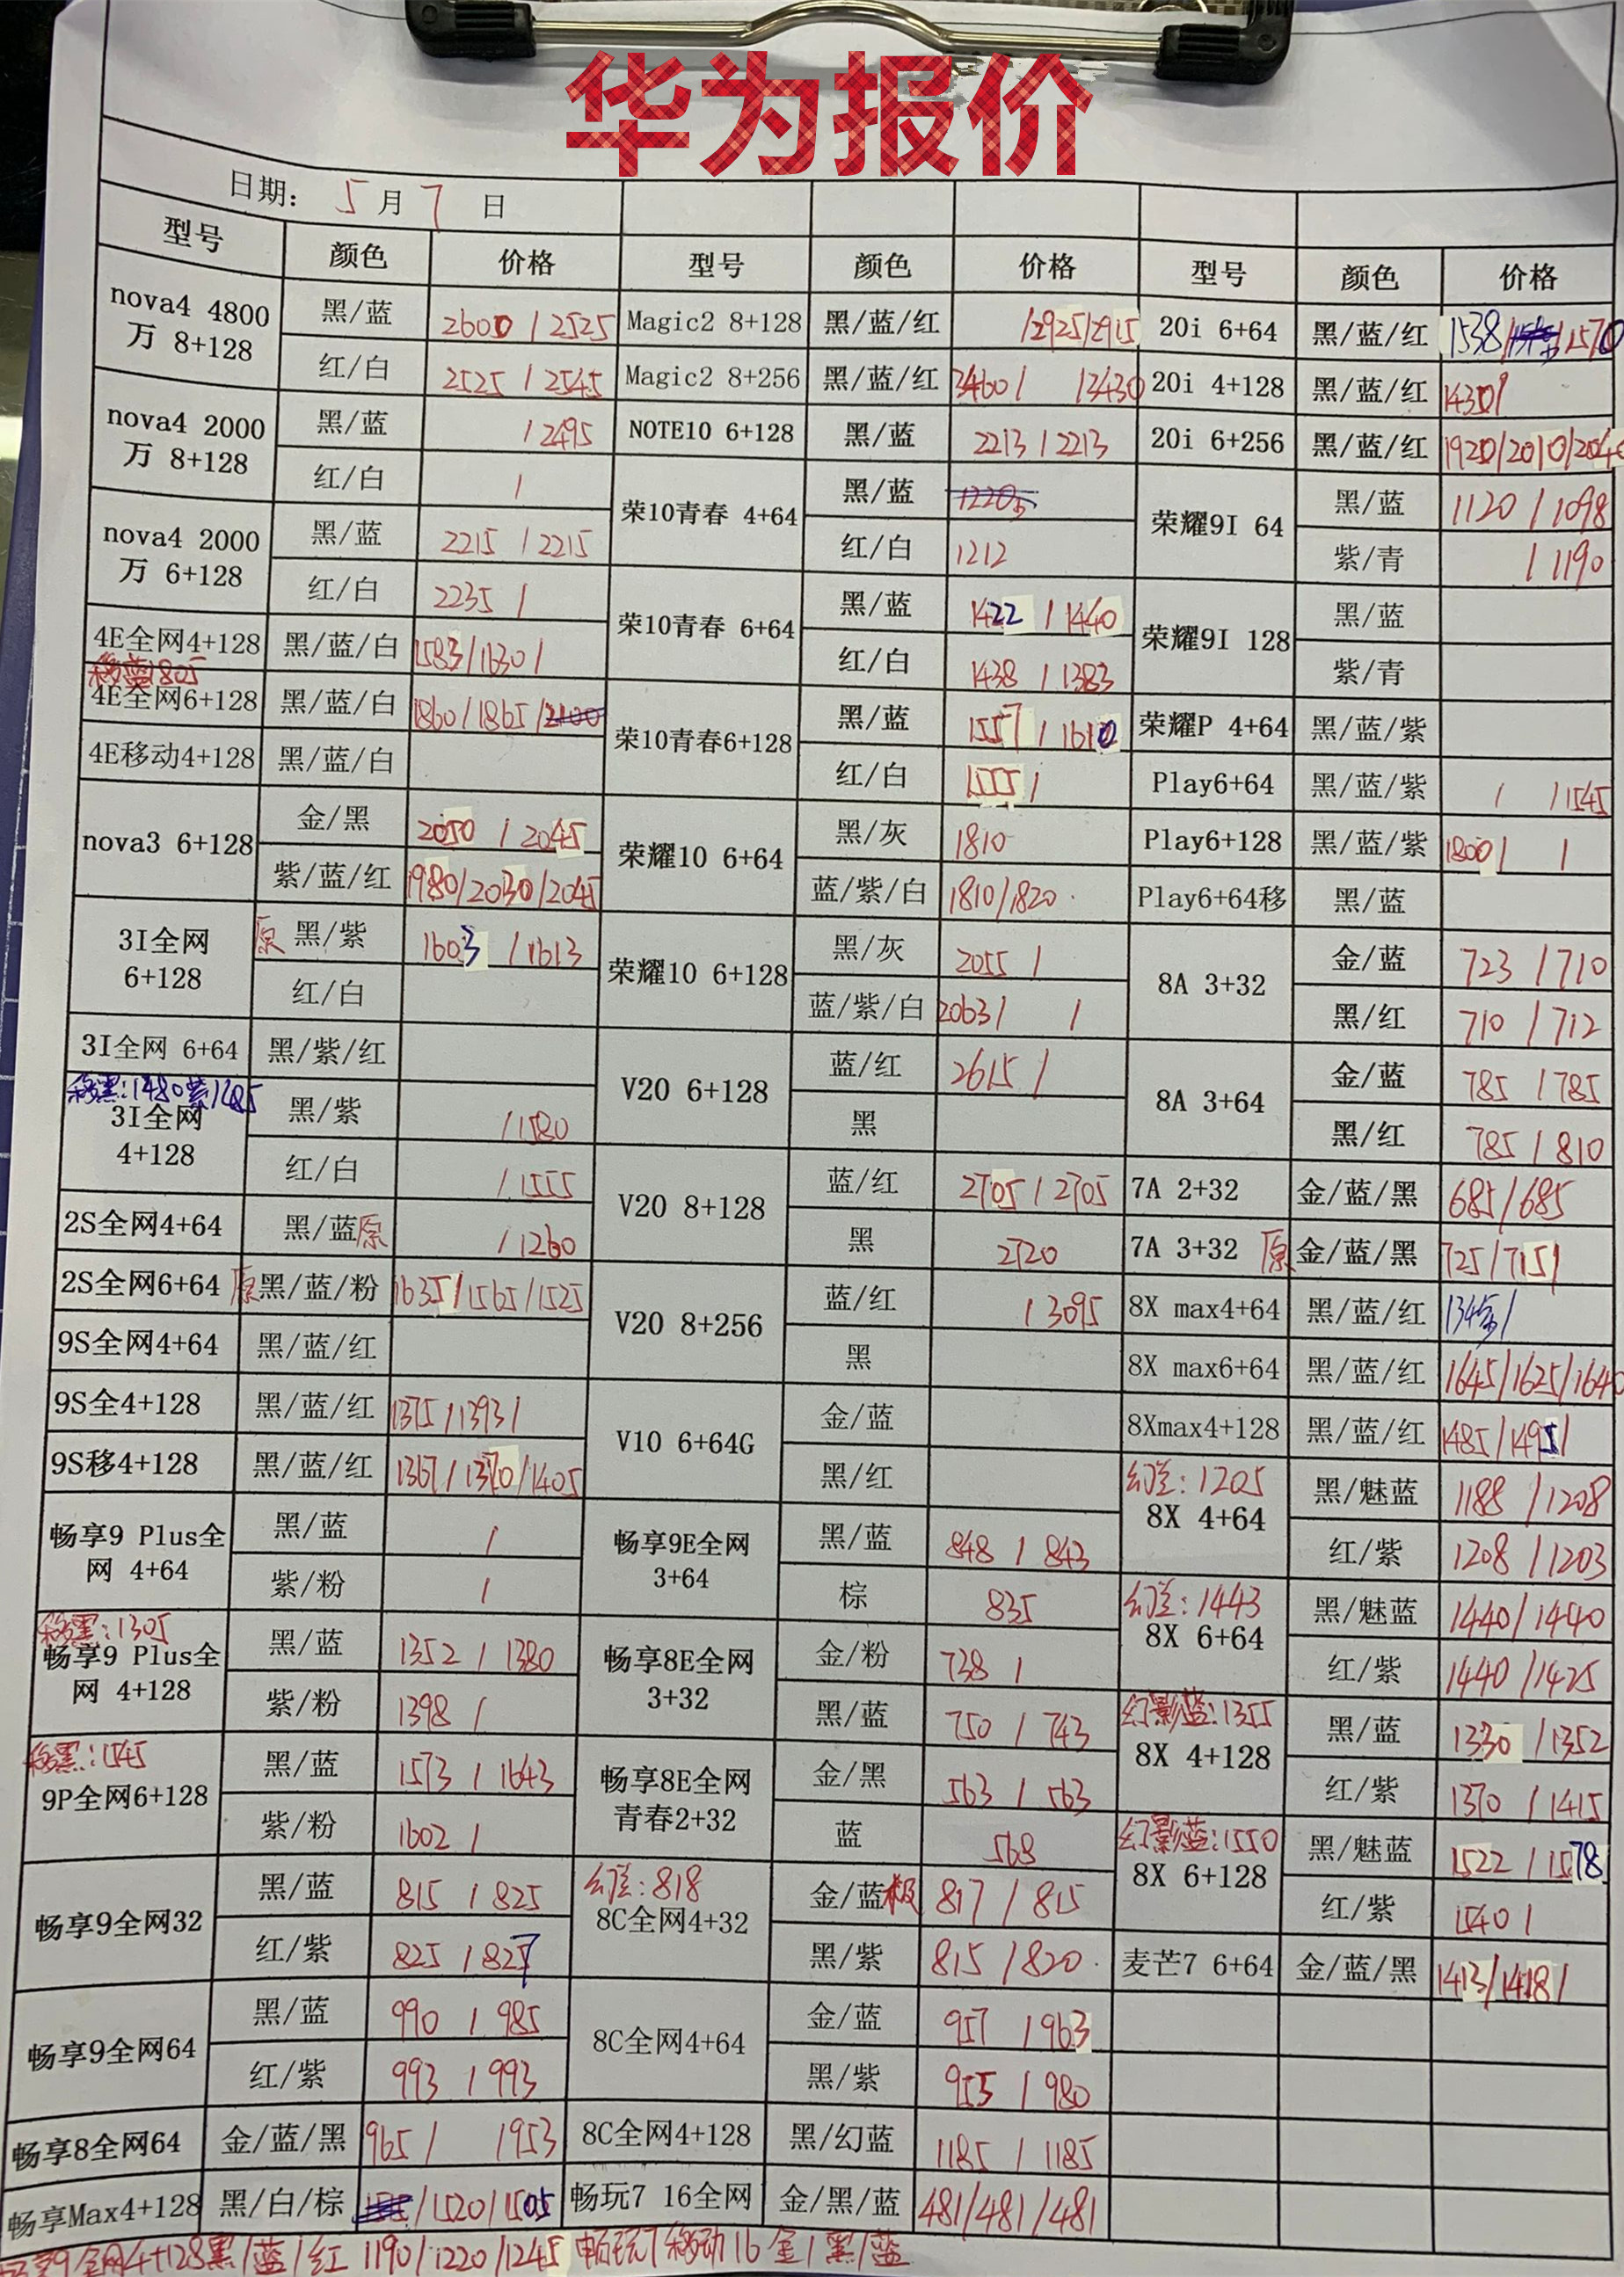 华为报价
日期： 5 月 7 日
型号 颜色 价格 型号 颜色 价格 型号 颜色 价格
nova4 4800万 8+128 黑/蓝 2600 / 2525 Magic2 8+128 黑/蓝/红 /2925/2915 20i 6+64 黑/蓝/红 1538/ /1570
红/白 2525 / 2545 Magic2 8+256 黑/蓝/红 3460/ /3430 20i 4+128 黑/蓝/红 1430/
nova4 2000万 8+128 黑/蓝 / 2495 NOTE10 6+128 黑/蓝 2213 / 2213 20i 6+256 黑/蓝/红 1920/2010/2040
红/白 / 荣10青春 4+64 黑/蓝 荣耀9I 64 黑/蓝 1120 / 1098
nova4 2000万 6+128 黑/蓝 2215 / 2215 红/白 1212 紫/青 / 1190
红/白 2235 / 荣10青春 6+64 黑/蓝 1422 / 1440 荣耀9I 128 黑/蓝
4E全网4+128 黑/蓝/白 1583/1630/ 红/白 1438 / 1383 紫/青
移蓝1805
4E全网6+128 黑/蓝/白 1860/1865/2100 荣10青春6+128 黑/蓝 1557 / 1610 荣耀P 4+64 黑/蓝/紫
4E移动4+128 黑/蓝/白 红/白 1555 / Play6+64 黑/蓝/紫 / /1545
nova3 6+128 金/黑 2050 / 2045 荣耀10 6+64 黑/灰 1810 Play6+128 黑/蓝/紫 1800/ /
紫/蓝/红 1980/2030/2045 蓝/紫/白 1810/1820 Play6+64移 黑/蓝
3I全网 6+128 原 黑/紫 1603 / 1613 荣耀10 6+128 黑/灰 2055 / 8A 3+32 金/蓝 723 / 710
红/白 蓝/紫/白 2063/ / 黑/红 710 / 712
3I全网 6+64 黑/紫/红 V20 6+128 蓝/红 2615 / 8A 3+64 金/蓝 785 / 785
移黑:1480紫1485
3I全网 4+128 黑/紫 / 1580 黑 黑/红 785 / 810
红/白 / 1555 V20 8+128 蓝/红 2705 / 2705 7A 2+32 金/蓝/黑 685/685
2S全网4+64 黑/蓝原 / 1260 黑 2720 7A 3+32 原 金/蓝/黑 725/715/
2S全网6+64 原 黑/蓝/粉 1635/1565/1525 V20 8+256 蓝/红 / 3095 8X max4+64 黑/蓝/红
9S全网4+64 黑/蓝/红 黑 8X max6+64 黑/蓝/红 1645/1625/1640
9S全4+128 黑/蓝/红 1375/1393/ V10 6+64G 金/蓝 8Xmax4+128 黑/蓝/红 1485/1495/
9S移4+128 黑/蓝/红 1367/1370/1405 黑/红 幻影:1205 8X 4+64 黑/魅蓝 1188 / 1208
畅享9 Plus全网 4+64 黑/蓝 / 畅享9E全网 3+64 黑/蓝 848 / 843 红/紫 1208 / 1203
紫/粉 / 棕 835 幻影:1443 8X 6+64 黑/魅蓝 1440/1440
移黑:1305
畅享9 Plus全网 4+128 黑/蓝 1352 / 1380 畅享8E全网 3+32 金/粉 738 / 红/紫 1440 / 1425
紫/粉 1398 / 黑/蓝 750 / 743 幻影蓝:1355 8X 4+128 黑/蓝 1330 / 1352
移黑:1545
9P全网6+128 黑/蓝 1573 / 1643 畅享8E全网 青春2+32 金/黑 563 / 563 红/紫 1370 / 1415
紫/粉 1602 / 蓝 568 幻影蓝:1550 8X 6+128 黑/魅蓝 1522 / 1578
畅享9全网32 黑/蓝 815 / 825 :818 8C全网4+32 金/蓝极 817 / 815 红/紫 1540 /
红/紫 825 / 827 黑/紫 815 / 820 麦芒7 6+64 金/蓝/黑 1413/1418/
畅享9全网64 黑/蓝 990 / 985 8C全网4+64 金/蓝 957 / 963
红/紫 993 / 993 黑/紫 955 / 980
畅享8全网64 金/蓝/黑 965 / / 953 8C全网4+128 黑/幻蓝 1185 / 1185
畅享Max4+128 黑/白/棕 /1520/1505 畅玩7 16全网 金/黑/蓝 481/481/481
享9全网4+128黑/蓝/红 1190/1220/1245 畅玩7移动16金/黑/蓝